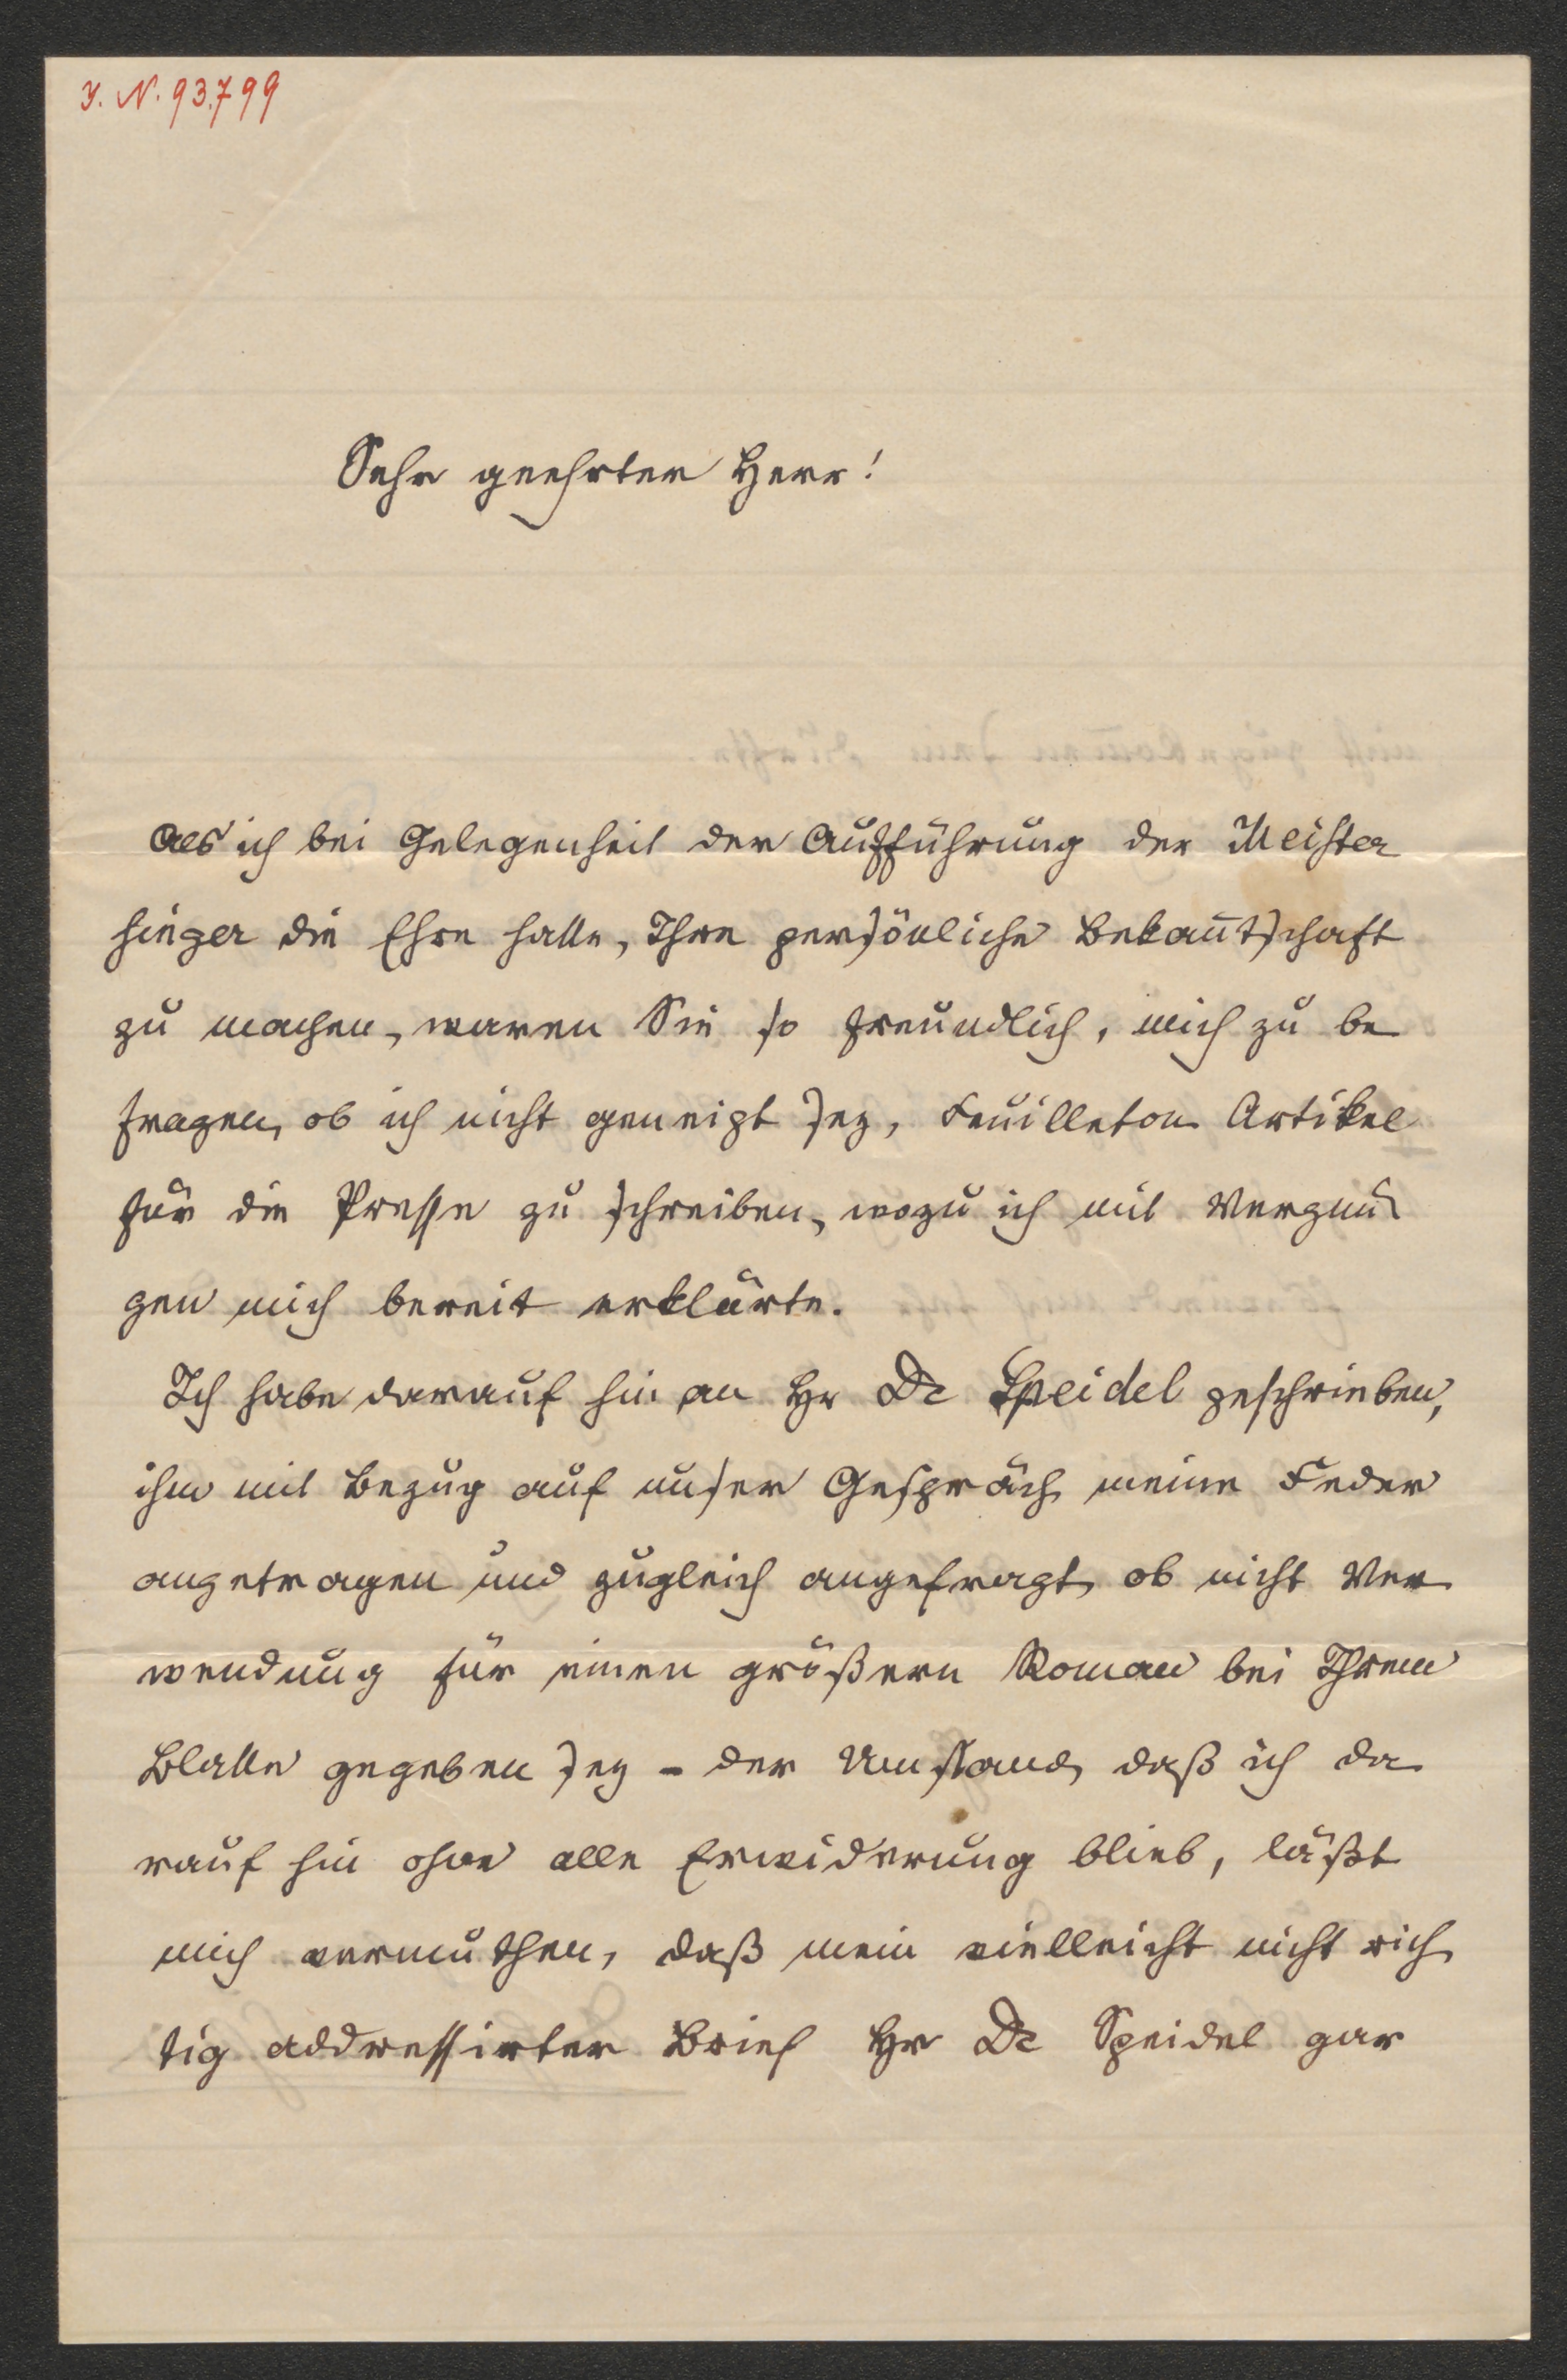 J. N. 93.799
Sehr geehrter Herr!
Als ich bei Gelegenheit der Aufführung der Meister
singer die Ehre hatte, Ihre persönliche Bekan̄tschaft
zu machen, waren Sie so freundlich, mich zu be
fragen, ob ich nicht geneigt sey, Feuilleton Artikel
für die Presse zu schreiben, wozu ich mit Vergnü
gen mich bereit erklärte.
Ich habe darauf hin an Hr Dr Speidel geschrieben,
ihm mit Bezug auf unser Gespräch meine Feder
angetragen und zugleich angefragt, ob nicht Ver
wendung für einen größern Roman bei Ihrem
Blatte gegeben sey – der Umstand, daß ich da
rauf hin ohne alle Erwiderung blieb, läßt
mich vermuthen, daß mein vielleicht nicht rich
tig addressirter Brief Hr Dr Speidel gar